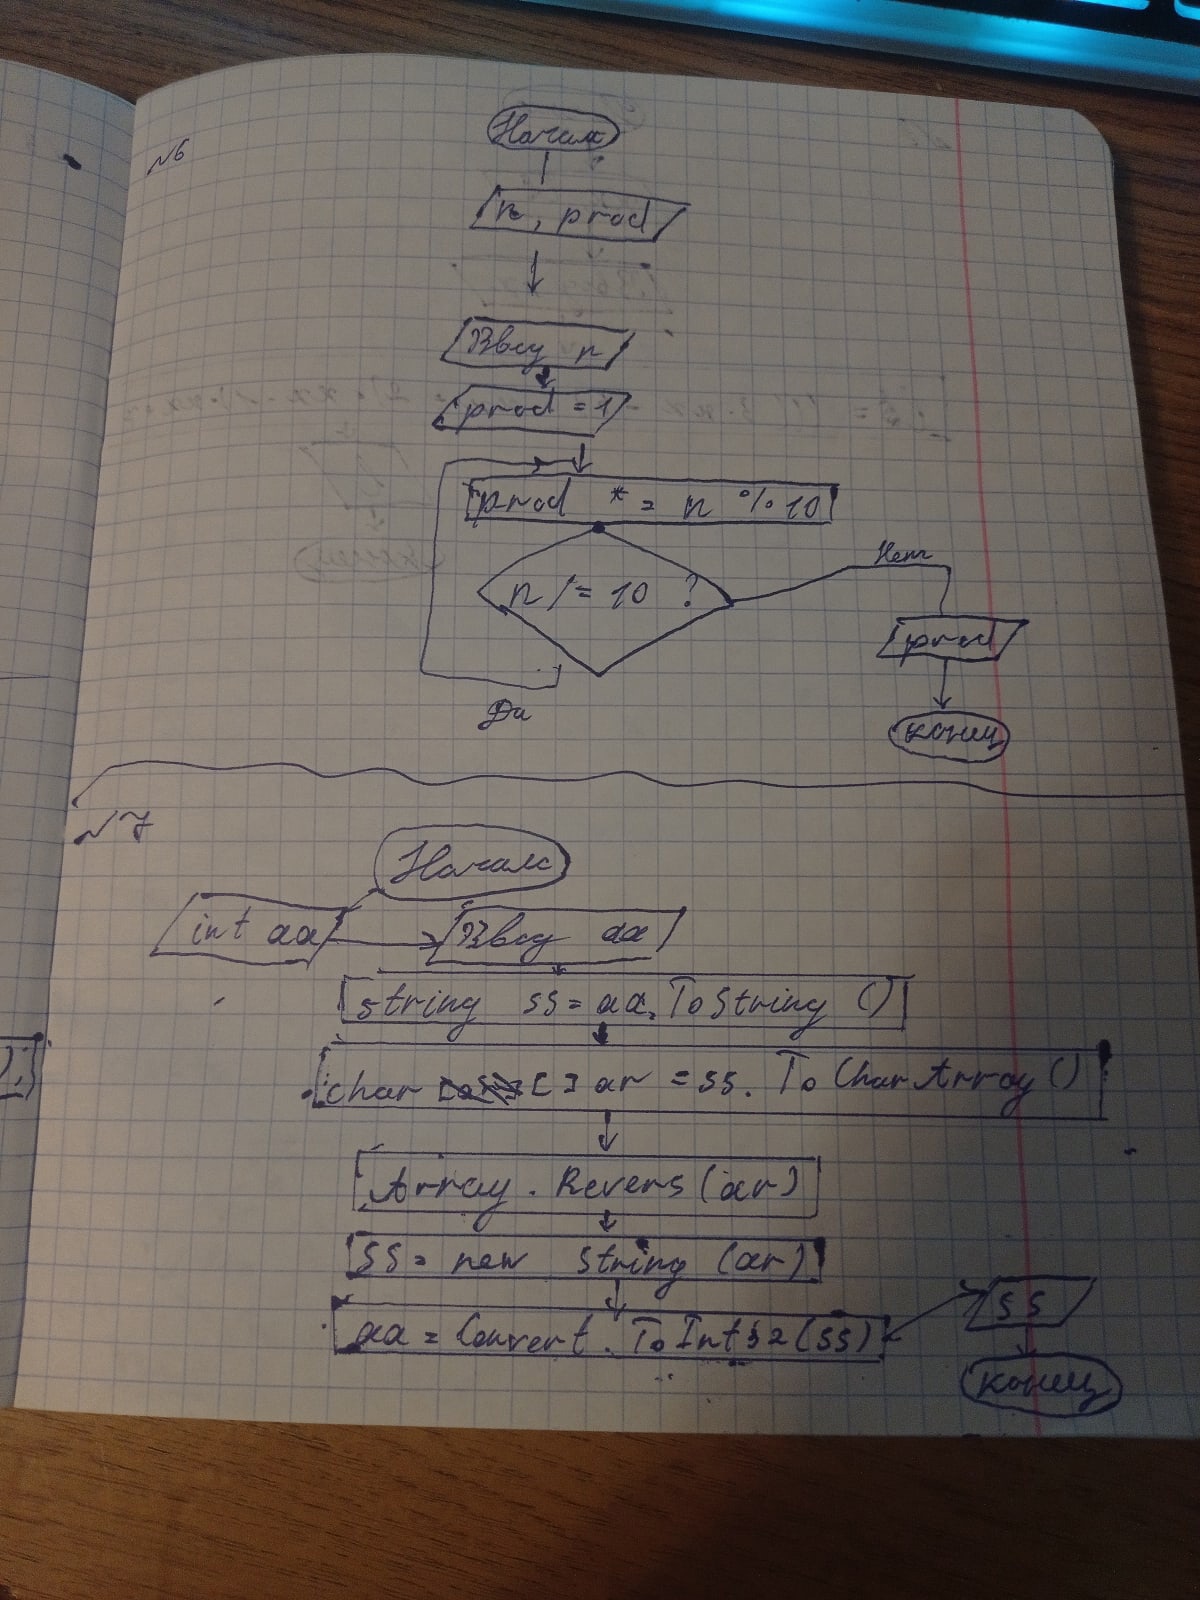 №6
Начало
n, prod
Ввод n
prod = 1
prod *= n % 10
n /= 10 ?
Нет
prod
Да
конец
№7
Начало
int aa
Ввод aa
string ss = aa.ToString ()
char [] ar = ss. To CharArray ()
Array. Revers (ar)
ss = new string (ar)
aa = Convert. ToInt32 (ss)
ss
конец